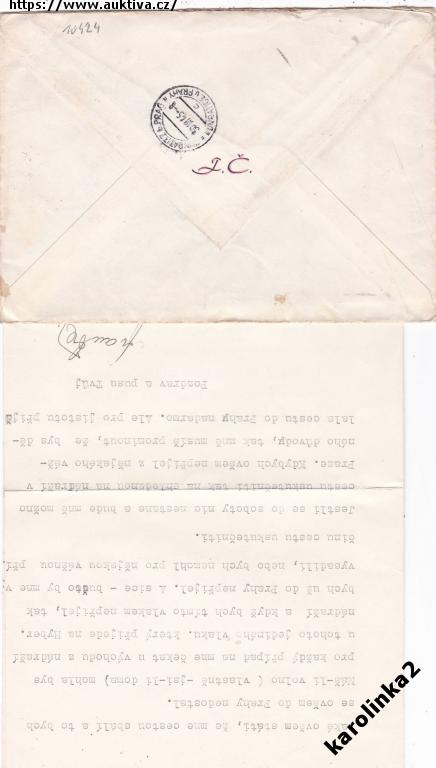 https://www.auktiva.cz/
10424
J.Č.
také ovšem státi, že mne cestou a to bych
se ovšem do Prahy nedostal.
Máš-li volno ( vlastně -jsi-li doma) mohla bys
pro každý případ na mne čekat u východu z nádraží
u tohoto jediného vlaku. který přijede na Hyber.
nádraží a když bych tímto vlakem nepřijel, tak
bych už do Prahy nepřijel. A sice - buďto by mne v
vysadili, nebo bych nemohl pro nějakou vážnou pří
činu cestu uskutečniti.
Jestli se do soboty nic nestane a bude mně možno
cestu uskutečniti tak na shledanou na nádraží v
Praze. Kdybych ovšem nepřijel z nějakého váž-
ného důvodu, tak mně musíš prominout, že bys dě-
lala cestu do Prahy nadarmo. Ale pro jistotu přijď
Pozdrav a pusu Tvůj
karolinka2